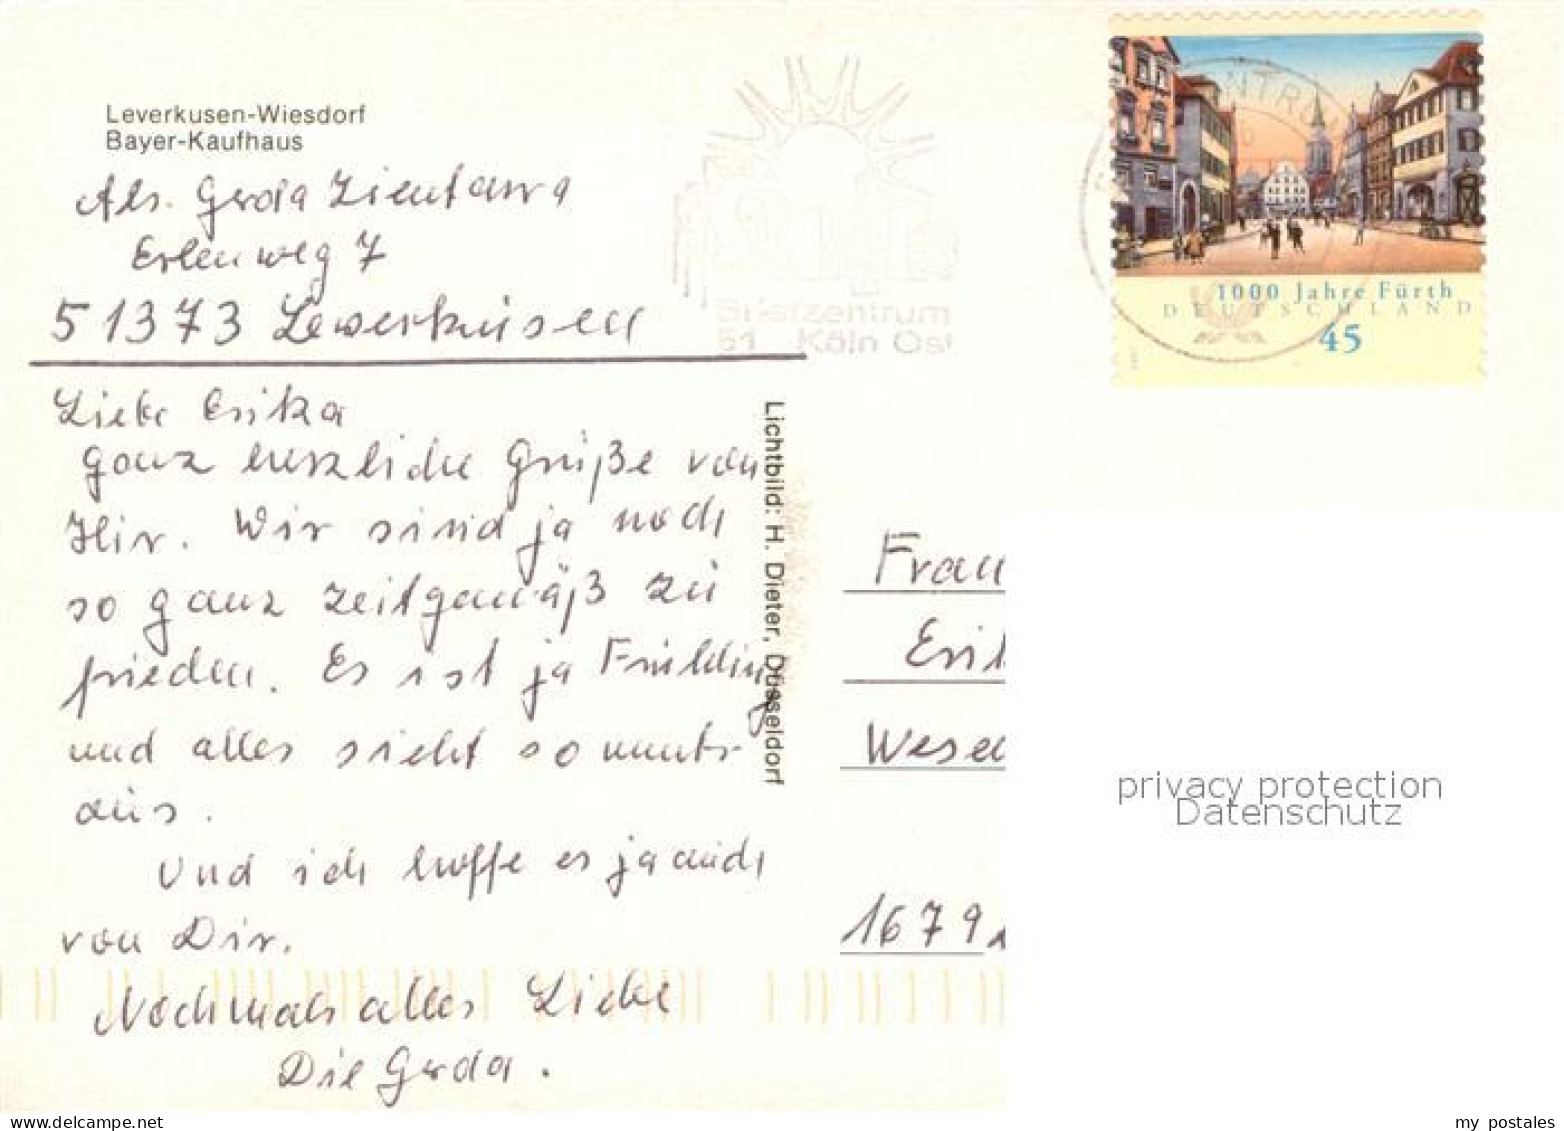 Leverkusen-Wiesdorf
Bayer-Kaufhaus
Abs. Gerda Zientarra
Erlenweg 7
51373 Leverkusen
Liebe Erika
ganz herzliche Grüße von
Hir. Wir sind ja noch
so ganz zeitgemäß zu
frieden. Es ist ja Frühling
und alles sieht so
aus.
Und ich hoffe es ja auch
von Dir.
Nochmals alles Liebe
Die Gerda.
Lichtbild: H. Dieter, Düsseldorf
Briefzentrum
51 Köln Ost
1000 Jahre Fürth
DEUTSCHLAND
45
Frau
Erik
Wese
1679
privacy protection
Datenschutz
my postales